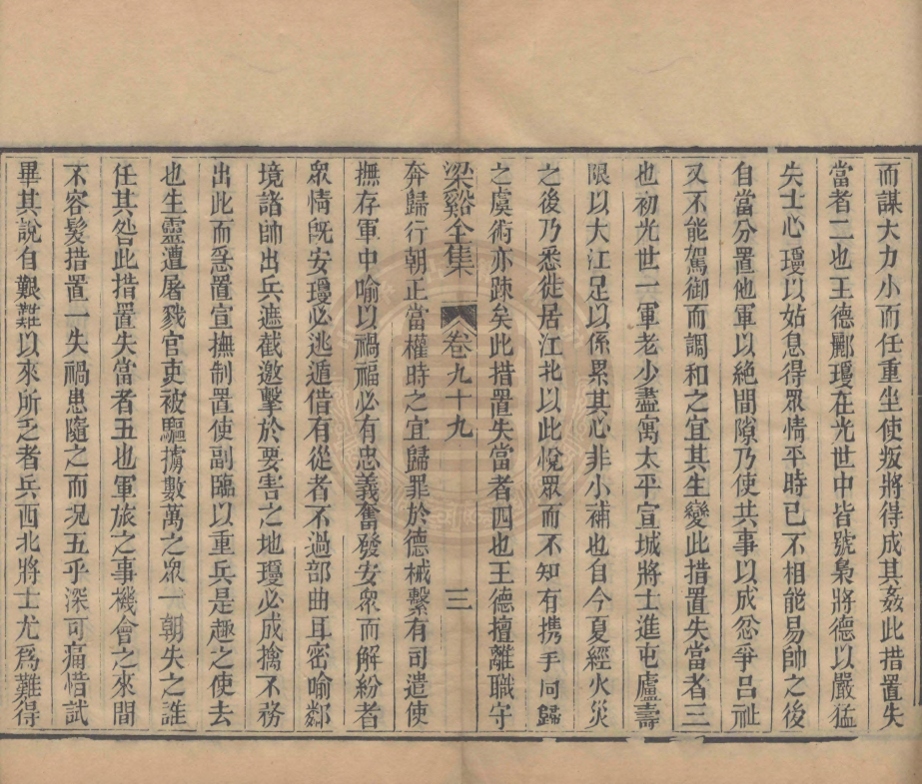 而謀大力小而任重坐使叛將得成其姦此措置失
當者二也王德酈瓊在光世中皆號梟將德以嚴猛
失士心瓊以姑息得眾情平時已不相能易帥之後
自當分置他軍以絶間隙乃使共事以成忿爭呂祉
又不能駕御而調和之宜其生變此措置失當者三
也初光世一軍老少盡寓太平宣城將士進屯廬壽
限以大江足以係累其心非小補也自今夏經火災
之後乃悉徙居江北以此悅眾而不知有携手同歸
之虞術亦踈矣此措置失當者四也王德擅離職守
梁谿全集 卷九十九 三
奔歸行朝正當權時之宜歸罪於德械繫有司遣使
撫存軍中喻以禍福必有忠義奮發安衆而解紛者
眾情旣安瓊必逃遁借有從者不過部曲耳密喻鄰
境諸帥出兵遮截邀擊於要害之地瓊必成擒不務
出此而亟置宣撫制置使副臨以重兵是趣之使去
也生靈遭屠戮官吏被驅擄數萬之眾一朝失之誰
任其咎此措置失當者五也軍旅之事機會之來間
不容髮措置一失禍患隨之而况五乎深可痛惜試
畢其說自艱難以來所乏者兵西北將士尤爲難得